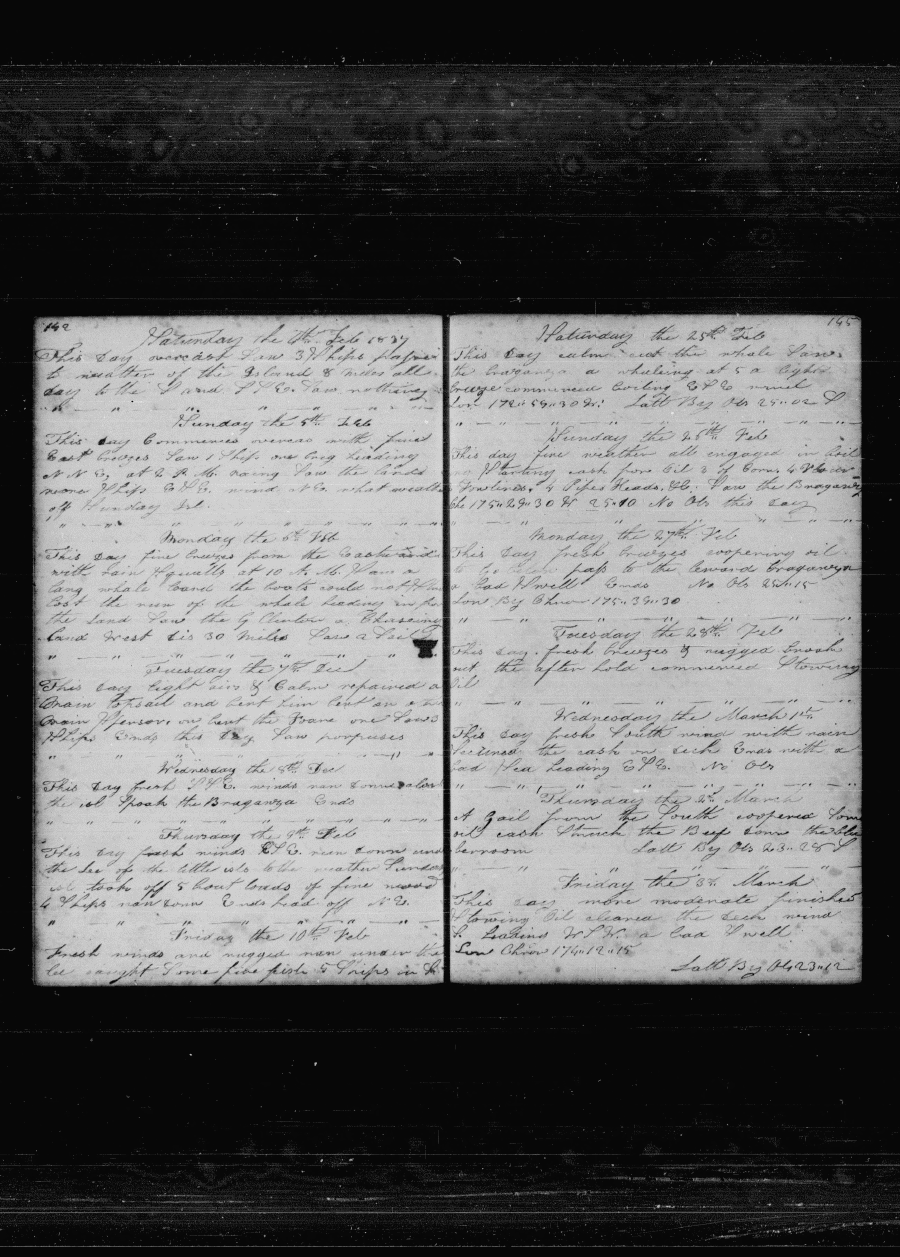 142
Saturday the 4th Feb 1837
This day overcast Saw 3 Ships
to weather of the Island 8 miles all
day to the S and SSE. Saw nothing
Sunday the 5th Feb
This day Commences overcas with fine
East breezes Saw 1 Ship one Brig Heading
N N E, at 2 P.M. Saw the land
more Ships ESE. wind NE.
off Sunday Isl.
Monday the 6th Feb
This day fine breezes from the Eastward
with rain Squalls at 10 A.M. Saw a
whale the boats could not
Lost the run of the whale heading
the Land Saw the G Clinton a Chaseing
Land West Dis 30 miles Saw a Sail
Tuesday the 7th Dec
This day light airs & Calm repaired a
main topsail and bent him bent an
main Spensor un bent the Foare one Saw 3
Ships Ends this day Saw porpuses
Wednesday the 8th Dec
This day fresh SSE. winds ran down
the isl Spook the Braganza Ends
Thursday the 9th Feb
This day fresh winds ESE. ran down
the Lee of the little isls to the weather Sunday
isl took off 5 bout louds of fine wood
4 Ships ran down Ends head off N E.
Friday the 10th Feb
Fresh winds and rugged ran under the
lee caught Some five fish 5 Ships in
145
Saturday the 25th Feb
This day calm the whole Saw
the Braganza a whaleing at 5 a light
breeze commenced Boiling ESE
Lon 172"59"30 Latt By Obs 25"02 S
Sunday the 26th Feb
This day fine weather all engaged in
Starting cask for Oil 3 of Corn,
4 Pipes Heads, &c. Saw the Braganza
175"29"30 25"10 No Obs this day
Monday the 27th Feb
This day fresh breezes coopering oil
pass to the leward Braganza
a bad Swell Ends No Obs 25"15
Lon By Chron 175"39"30
Tuesday the 28th Feb
This day fresh breezes & rugged broak
out the after hold commenced Stowing
Oil
Wednesday the March 1st
This day fresh South wind with rain
Secured the cask on deck Ends with a
bad Sea heading ESE. No Obs
Thursday the 2d March
A gail from the South coopered Some
oil cask Struck the Beef down the
Latt By Obs 23"28 S
Friday the 3d March
This day more moderate finished
Stowing Oil cleared the deck wind
S. heading WSW. a bad Swell
Lon Chron 174"12"15
Latt By Obs 23"12